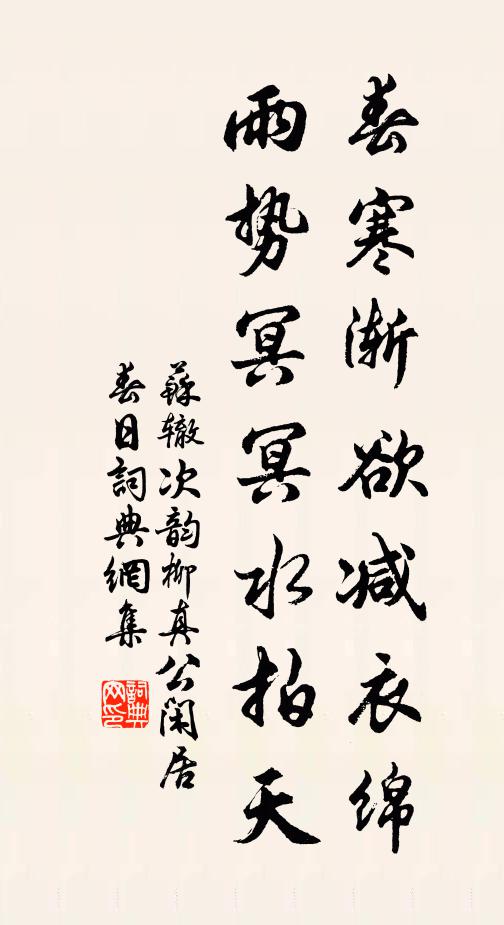 春寒渐欲减衣绵
雨势冥冥水拍天
蘇辙次韵柳真公闲居
春日詞典網集
詞典网印